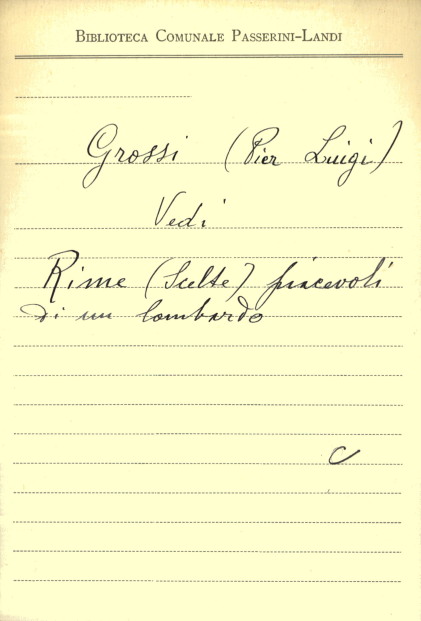 BIBLIOTECA COMUNALE PASSERINI-LANDI
Grossi (Pier Luigi)
Vedi
Rime (Scelte) piacevoli
di un lombardo
C